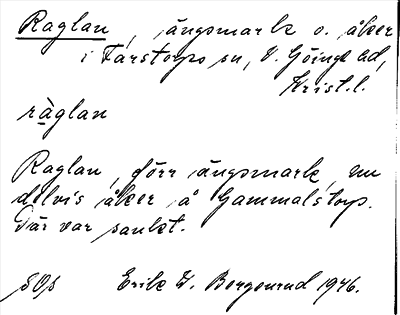 Raglan, ängsmark o. åker
i Farstorps sn, V. Göinge hd,
Krist. l.
ràglan
Raglan, förr ängsmark, nu
delvis åker å Gammalstorp.
Där var sankt.
SOs Erik W. Bergenrud 1946.